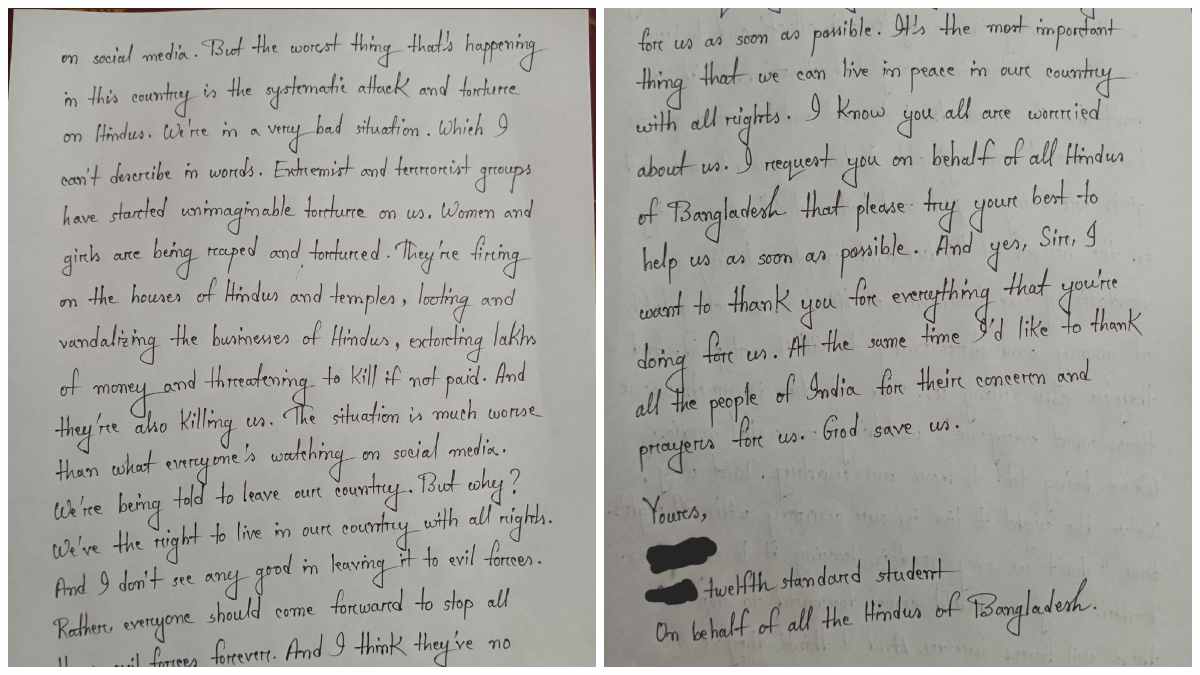 on social media. But the worst thing that's happening
in this country is the systematic attack and torture
on Hindus. We're in a very bad situation. Which I
can't describe in words. Extremist and terrorist groups
have started unimaginable torture on us. Women and
girls are being raped and tortured. They're firing
on the houses of Hindus and temples, looting and
vandalizing the businesses of Hindus, extorting lakhs
of money and threatening to kill if not paid. And
they're also killing us. The situation is much worse
than what everyone's watching on social media.
We're being told to leave our country. But why?
We've the right to live in our country with all rights.
And I don't see any good in leaving it to evil forces.
Rather, everyone should come forward to stop all
evil forces forever. And I think they've no
for us as soon as possible. It's the most important
thing that we can live in peace in our country
with all rights. I know you all are worried
about us. I request you on behalf of all Hindus
of Bangladesh that please try your best to
help us as soon as possible. And yes, Sir, I
want to thank you for everything that you're
doing for us. At the same time I'd like to thank
all the people of India for their concern and
prayers for us. God save us.
Yours,
twelfth standard student
On behalf of all the Hindus of Bangladesh.